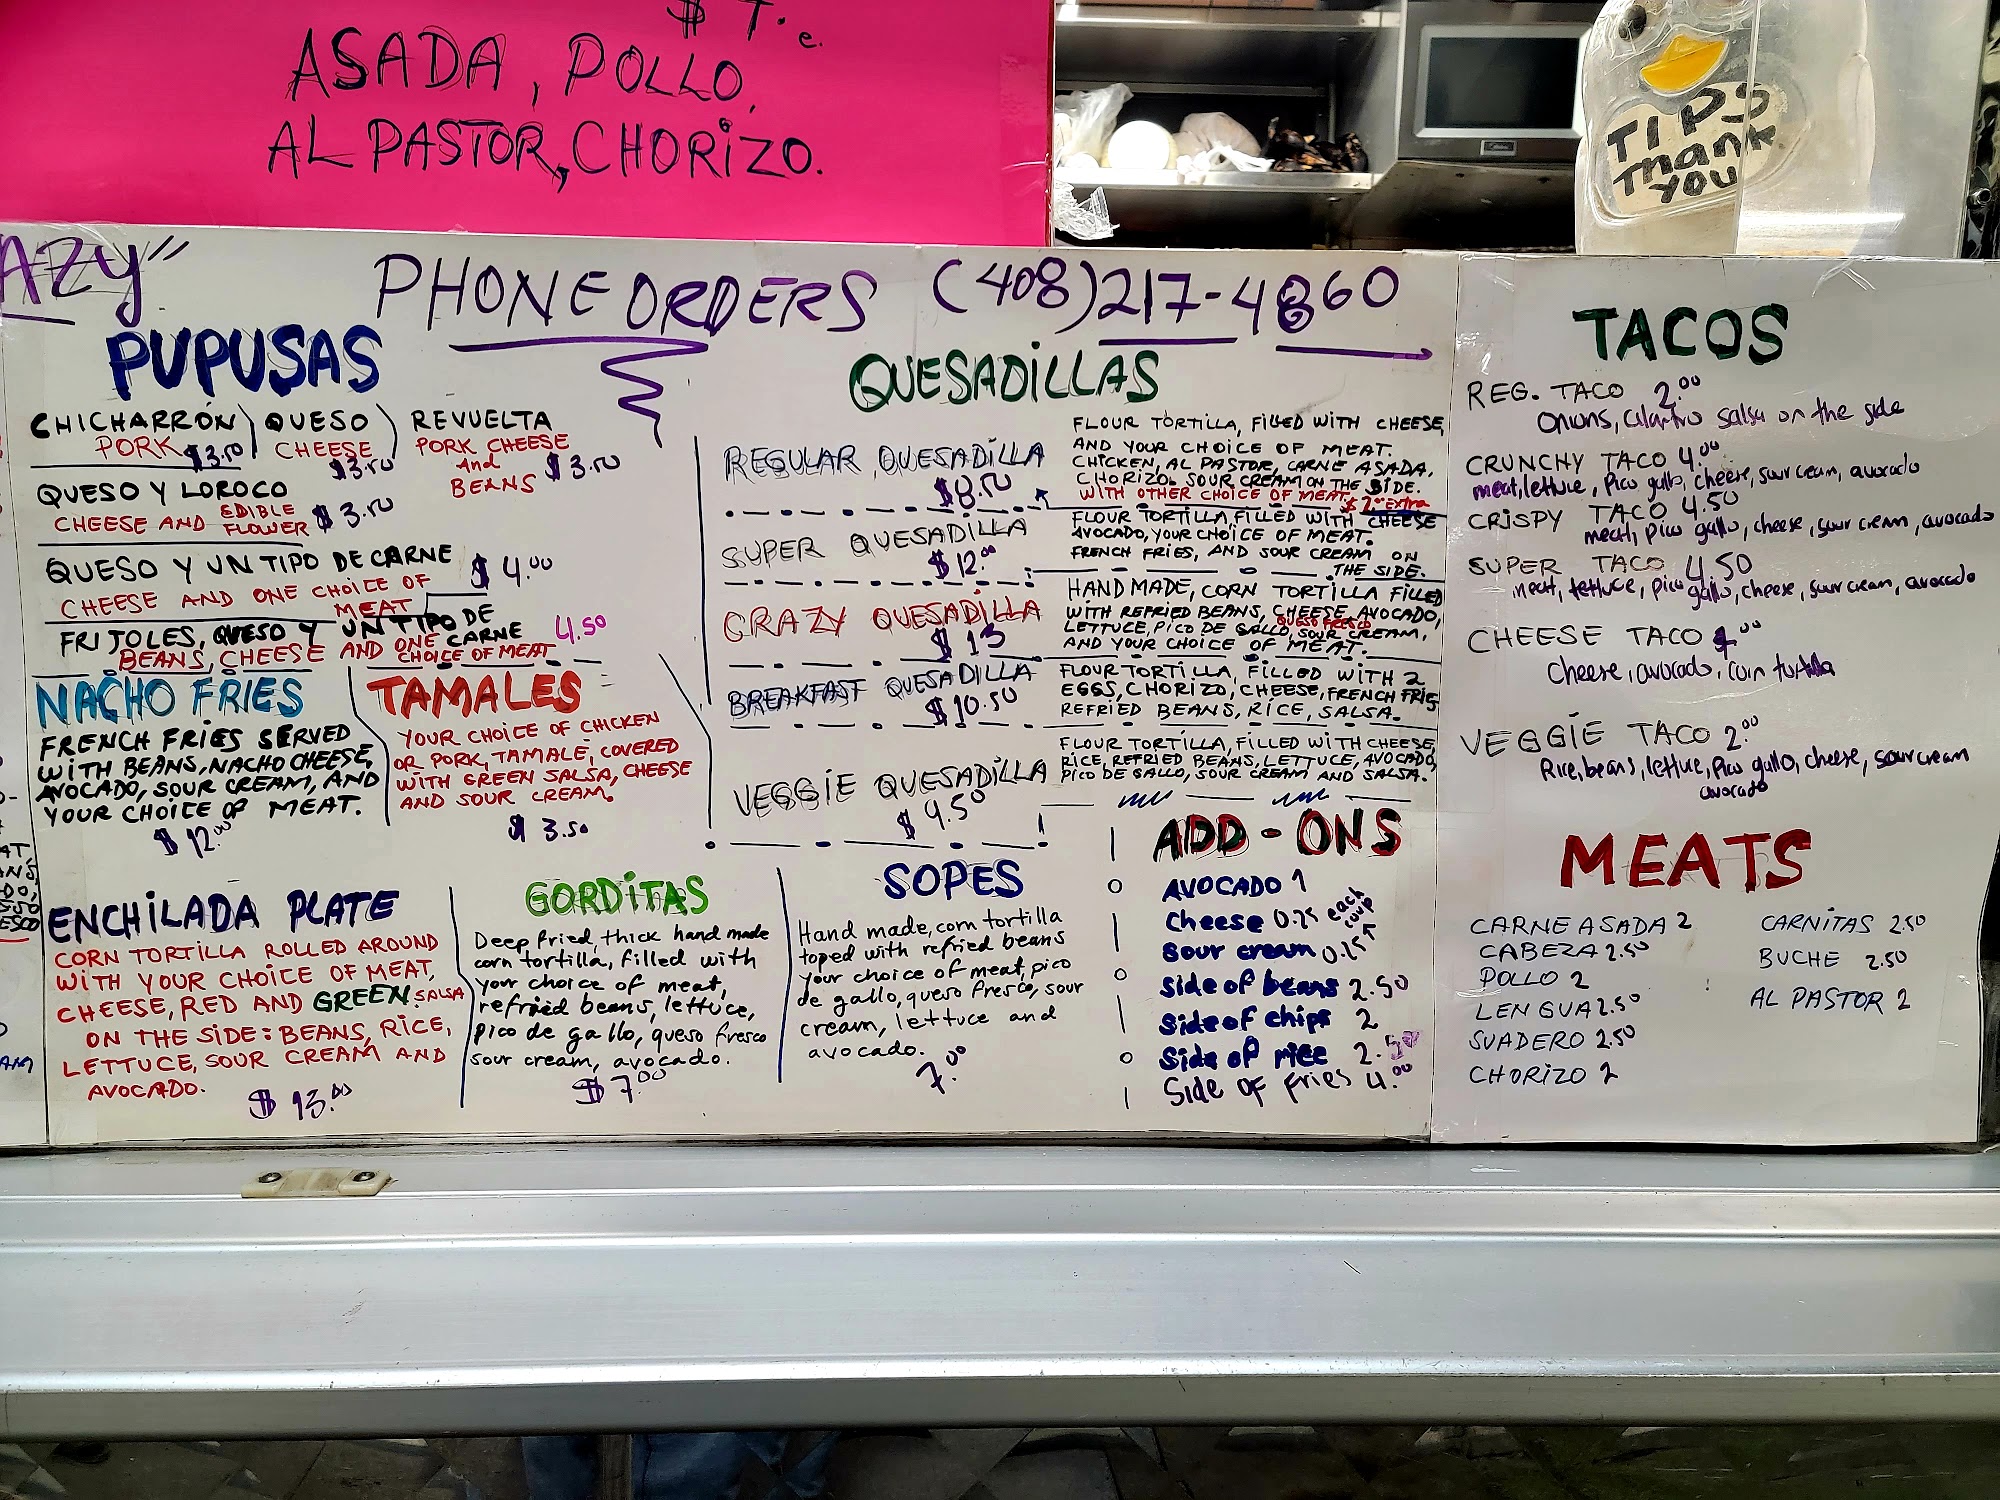 ASADA, POLLO,
AL PASTOR, CHORIZO.
TIPS
Thank
you
AZY"
PHONE ORDERS (408) 217-4860
PUPUSAS
CHICHARRÓN
PORK $3.50
QUESO
CHEESE
$3.50
REVUELTA
PORK CHEESE
and
BEANS $3.50
QUESO Y LOROCO
CHEESE AND EDIBLE FLOWER $3.50
QUESO Y UN TIPO DE CARNE $4.00
CHEESE AND ONE CHOICE OF
MEAT
FRIJOLES, QUESO Y UN TIPO DE CARNE 4.50
BEANS, CHEESE AND ONE CHOICE OF MEAT
NACHO FRIES
FRENCH FRIES SERVED
WITH BEANS, NACHO CHEESE,
AVOCADO, SOUR CREAM, AND
YOUR CHOICE OF MEAT.
$12.00
TAMALES
YOUR CHOICE OF CHICKEN
OR PORK, TAMALE, COVERED
WITH GREEN SALSA, CHEESE
AND SOUR CREAM.
$3.50
QUESADILLAS
REGULAR QUESADILLA
$8.50
FLOUR TORTILLA, FILLED WITH CHEESE,
AND YOUR CHOICE OF MEAT.
CHICKEN, AL PASTOR, CARNE ASADA,
CHORIZO. SOUR CREAM ON THE SIDE.
WITH OTHER CHOICE OF MEAT. $2.00 Extra
SUPER QUESADILLA
$12.00
FLOUR TORTILLA, FILLED WITH CHEESE
AVOCADO, YOUR CHOICE OF MEAT.
FRENCH FRIES, AND SOUR CREAM ON
THE SIDE.
CRAZY QUESADILLA
$13
HAND MADE, CORN TORTILLA FILLED
WITH REFRIED BEANS, CHEESE, AVOCADO,
QUESO FRESCO
LETTUCE, PICO DE GALLO, SOUR CREAM,
AND YOUR CHOICE OF MEAT.
BREAKFAST QUESADILLA
$10.50
FLOUR TORTILLA, FILLED WITH 2
EGGS, CHORIZO, CHEESE, FRENCH FRIES
REFRIED BEANS, RICE, SALSA.
VEGGIE QUESADILLA
$9.50
FLOUR TORTILLA, FILLED WITH CHEESE,
RICE, REFRIED BEANS, LETTUCE, AVOCADO,
PICO DE GALLO, SOUR CREAM AND SALSA.
ENCHILADA PLATE
CORN TORTILLA ROLLED AROUND
WITH YOUR CHOICE OF MEAT,
CHEESE, RED AND GREEN SALSA
ON THE SIDE: BEANS, RICE,
LETTUCE, SOUR CREAM AND
AVOCADO.
$13.00
GORDITAS
Deep fried, thick hand made
corn tortilla, filled with
your choice of meat,
refried beans, lettuce,
pico de gallo, queso fresco
sour cream, avocado.
$7.00
SOPES
Hand made, corn tortilla
toped with refried beans
your choice of meat, pico
de gallo, queso fresco, sour
cream, lettuce and
avocado.
7.00
ADD-ONS
AVOCADO 1
Cheese 0.75 each
Sour cream 0.75
Side of beans 2.50
Side of chips 2
Side of rice 2.50
Side of fries 4.00
TACOS
REG. TACO 2.00
Onions, cilantro salsa on the side
CRUNCHY TACO 4.00
meat, lettuce, pico gallo, cheese, sour cream, avocado
CRISPY TACO 4.50
meat, pico gallo, cheese, sour cream, avocado
SUPER TACO 4.50
meat, lettuce, pico gallo, cheese, sour cream, avocado
CHEESE TACO
cheese, avocado, corn tortilla
VEGGIE TACO 2.00
Rice, beans, lettuce, pico gallo, cheese, sour cream
avocado
MEATS
CARNE ASADA 2
CABEZA 2.50
POLLO 2
LENGUA 2.50
SUADERO 2.50
CHORIZO 2
CARNITAS 2.50
BUCHE 2.50
AL PASTOR 2